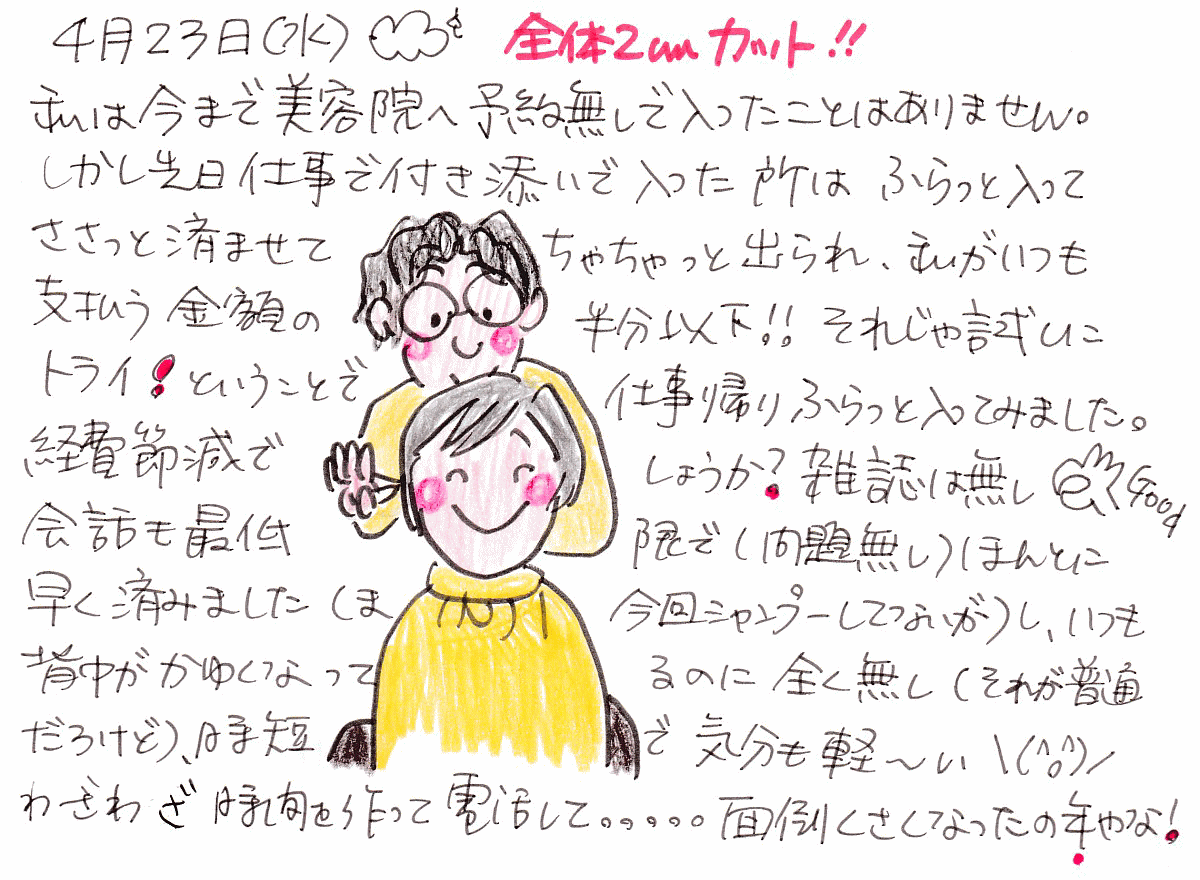 4月23日(水) 全体2cmカット!!
私は今まで美容院へ予約無しで入ったことはありません。
しかし先日仕事で付き添いで入った所は ふらっと入って
ささっと済ませて ちゃちゃっと出られ、私がいつも
支払う金額の 半分以下!! それじゃ試しに
トライ!ということで 仕事帰りふらっと入ってみました。
経費節減で しょうか?雑誌は無し Good
会話も最低 限で(問題無し)ほんとに
早く済みました(ま 今回シャンプーしてないが)し、いつも
背中がかゆくなって るのに全く無し(それが普通
だろけど)、時短 で 気分も軽〜い \(^o^)/
わざわざ 時間を作って電話して。。。。。面倒くさくなったの年やな!